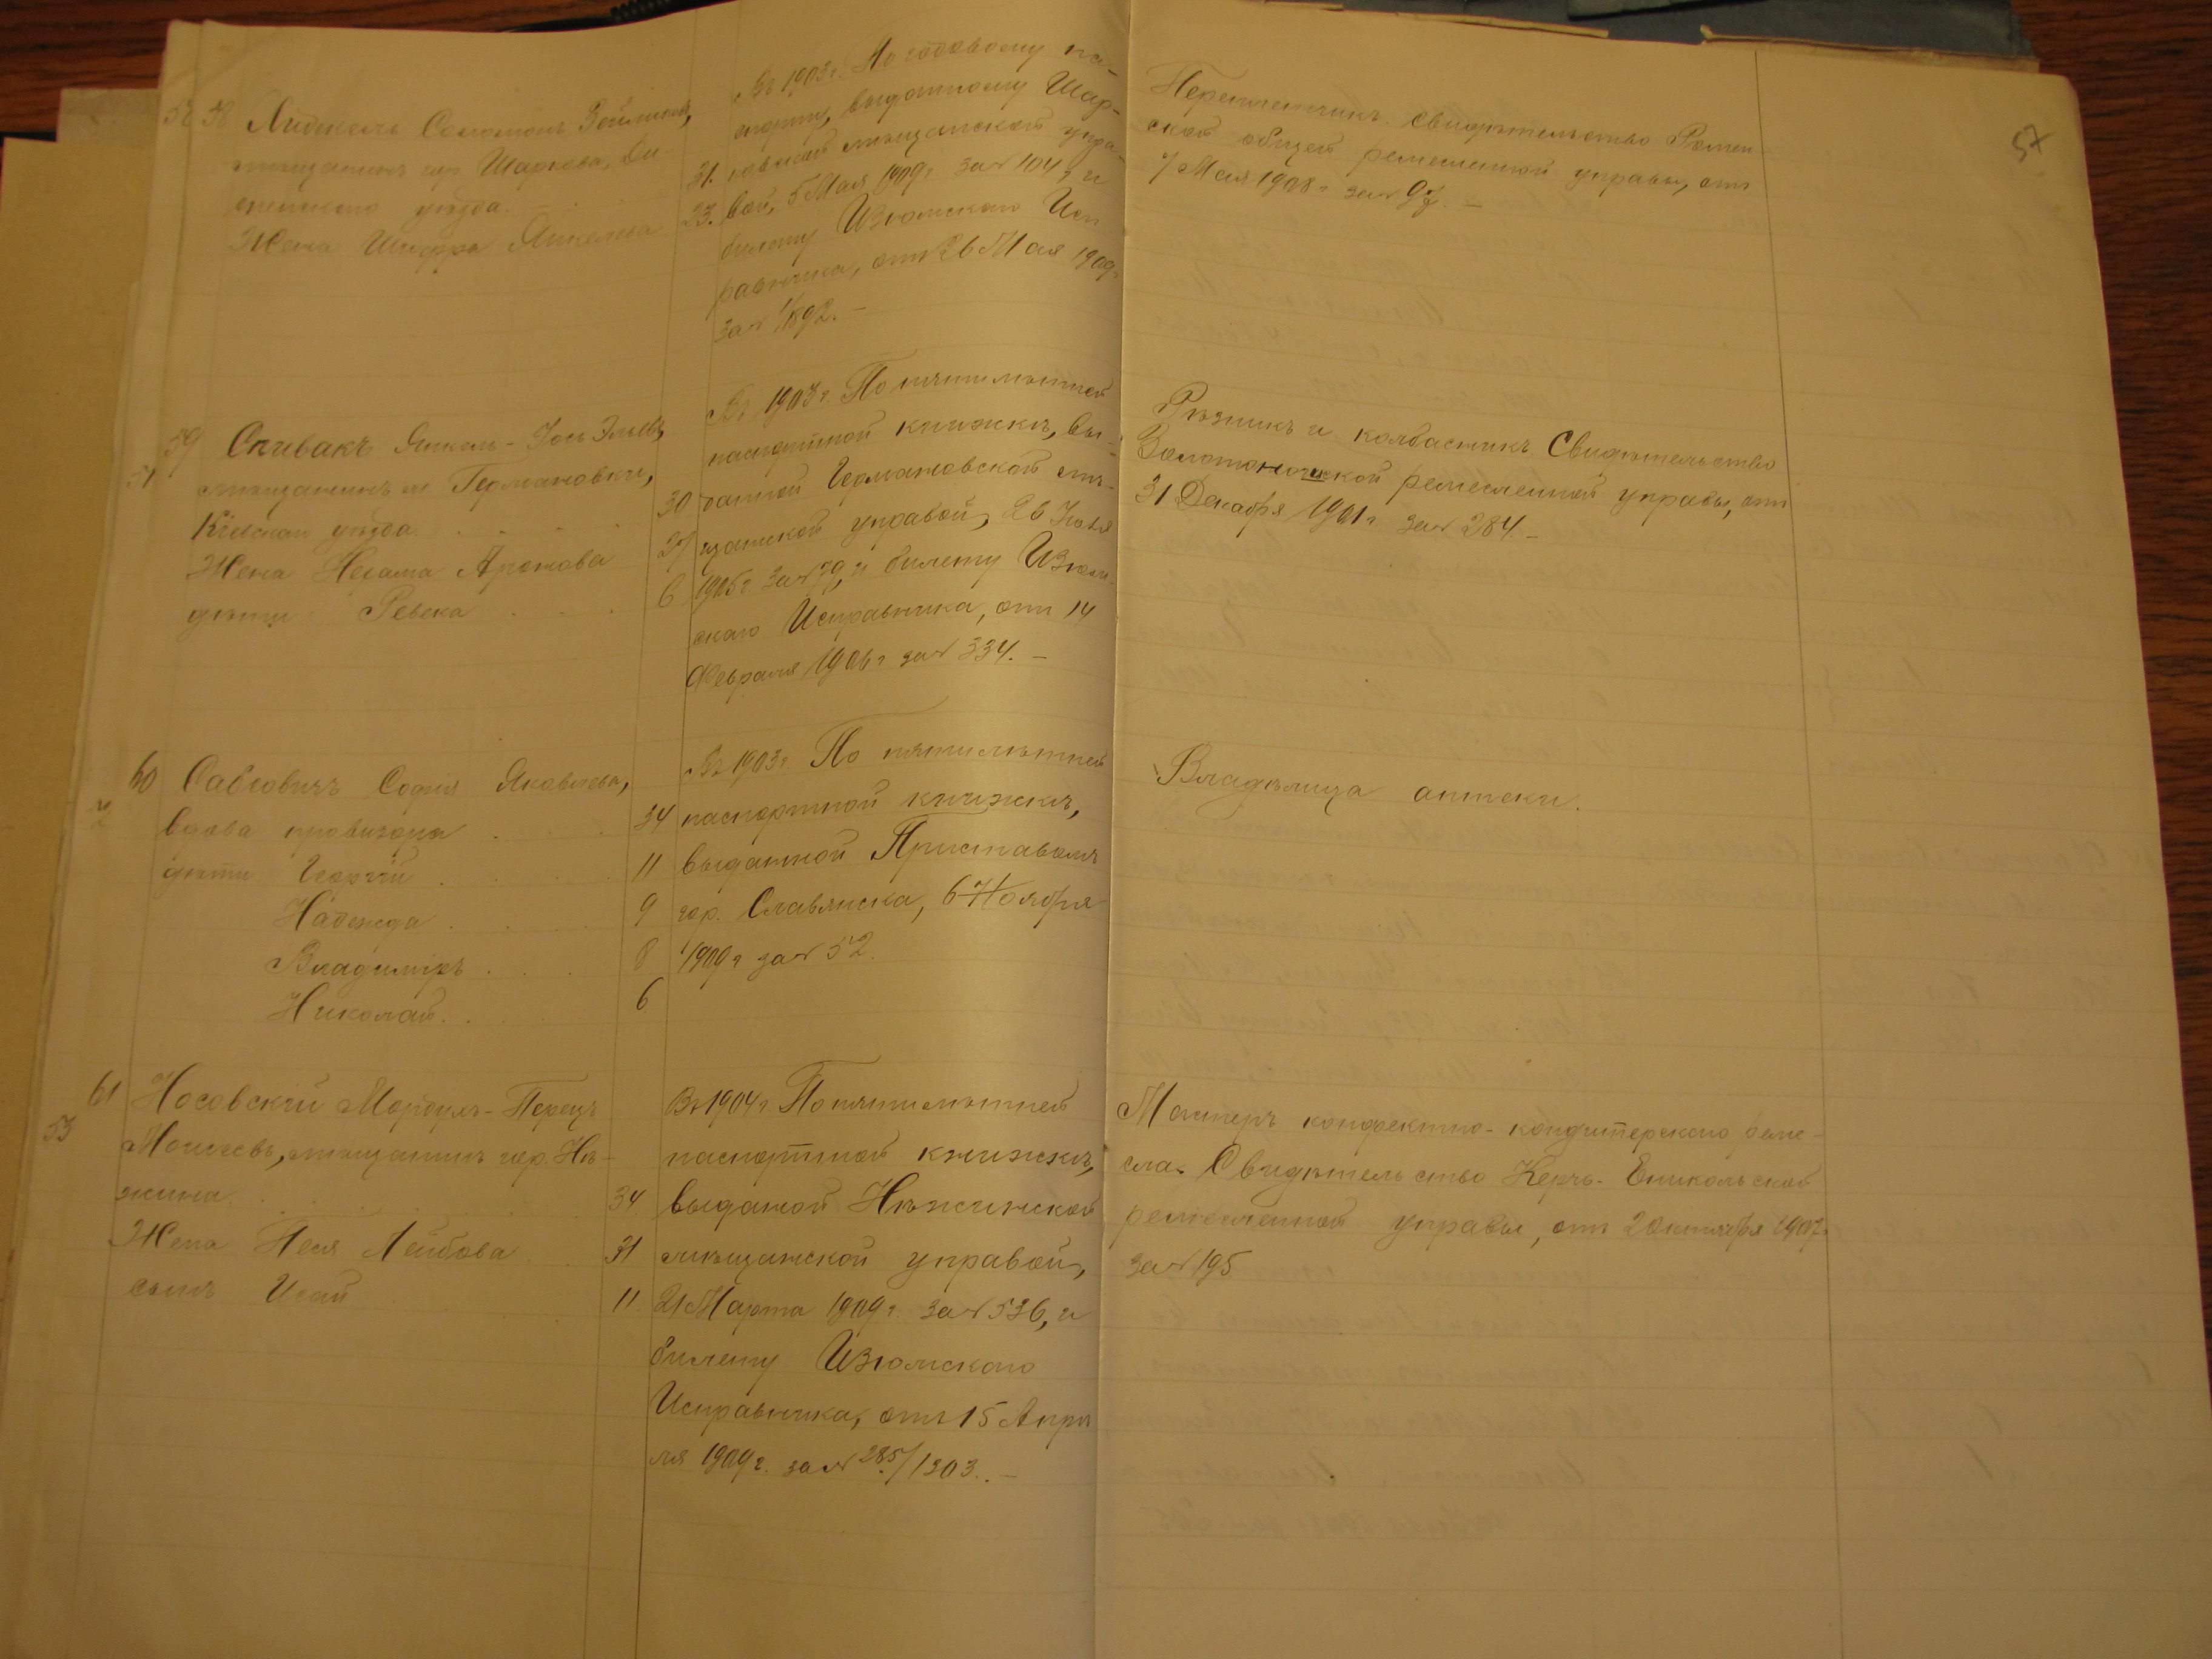 57
58 Лидскель Соломонъ Зейликовъ,
мѣщанинъ гор. Шаркова, Ди-
сненскаго уѣзда.
31.
Жена Шифра Янкелева 23.
Въ 1903 г. По годовому па-
спорту, выданному Шар-
ковской мѣщанской упра-
вой, 5 Мая 1909 г. за № 104, и
билету Изюмскаго Исп
равника, отъ 26 Мая 1909 г.
за № 1892. –
Переплетчикъ. Свидѣтельство Ромен-
ской общей ремесленной управы, отъ
7 Мая 1908 г. за № 97. –
59 Спивакъ Янкель-Іось Эльевъ,
51
мѣщанинъ м. Германовки,
Кіевскаго уѣзда. 30
Жена Нехама Аронова 27
дѣти: Ревека 6
Въ 1903 г. По пятилѣтней
паспортной книжкѣ, вы-
данной Германовской мѣ-
щанской управой, 26 Іюля
1905 г. за № 79, и билету Изюм-
скаго Исправника, отъ 14
Февраля 1906 г. за № 334. –
Рѣзникъ и колбасникъ. Свидѣтельство
Золотоношской ремесленной управы, отъ
31 Декабря 1901 г. за № 284. –
60 Савіовичъ Софія Яковлева,
вдова провизора 34
дѣти: Георгій 11
Надежда 9
Владиміръ 8
Николай 6
Въ 1903 г. По пятилѣтней
паспортной книжкѣ,
выданной Приставомъ
гор. Славянска, 6 Ноября
1909 г. за № 52.
Владѣлица аптеки.
61 Носовскій Мордухъ-Перецъ
53
Моисеевъ, мѣщанинъ гор. Нѣ-
жина. 34
Жена Песя Лейбова 31
сынъ Исай 11
Въ 1904 г. По пятилѣтней
паспортной книжкѣ,
выданой Нѣжинской
мѣщанской управой,
21 Марта 1909 г. за № 536, и
билету Изюмскаго
Исправника, отъ 15 Апрѣ
ля 1909 г. за № 285/1203. –
Мастеръ конфектно-кондитерскаго реме-
сла. Свидѣтельство Керчь-Еникольской
ремесленной управы, отъ 2 Октября 1907 г.
за № 195